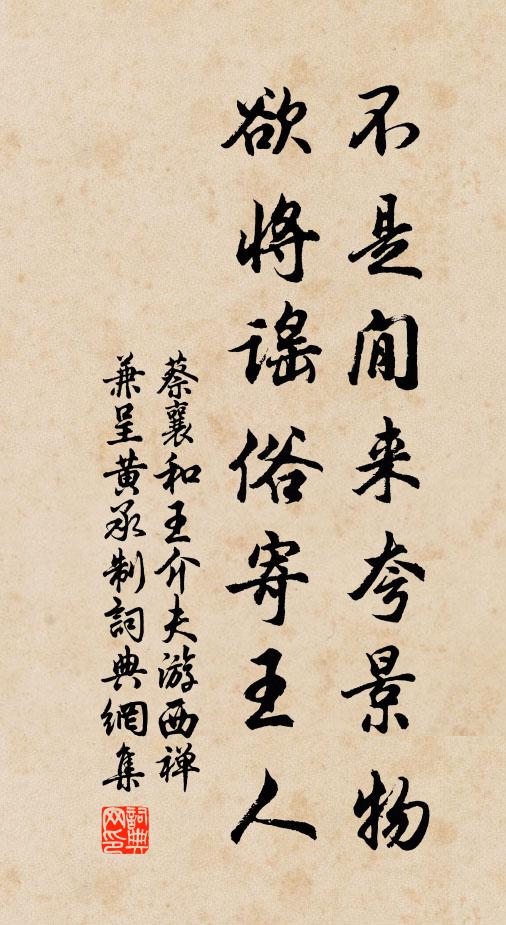 不是閒来夸景物
欲将謡俗寄王人
蔡襄和王介夫游西禅
兼呈黄承制詞典網集
詞典网印